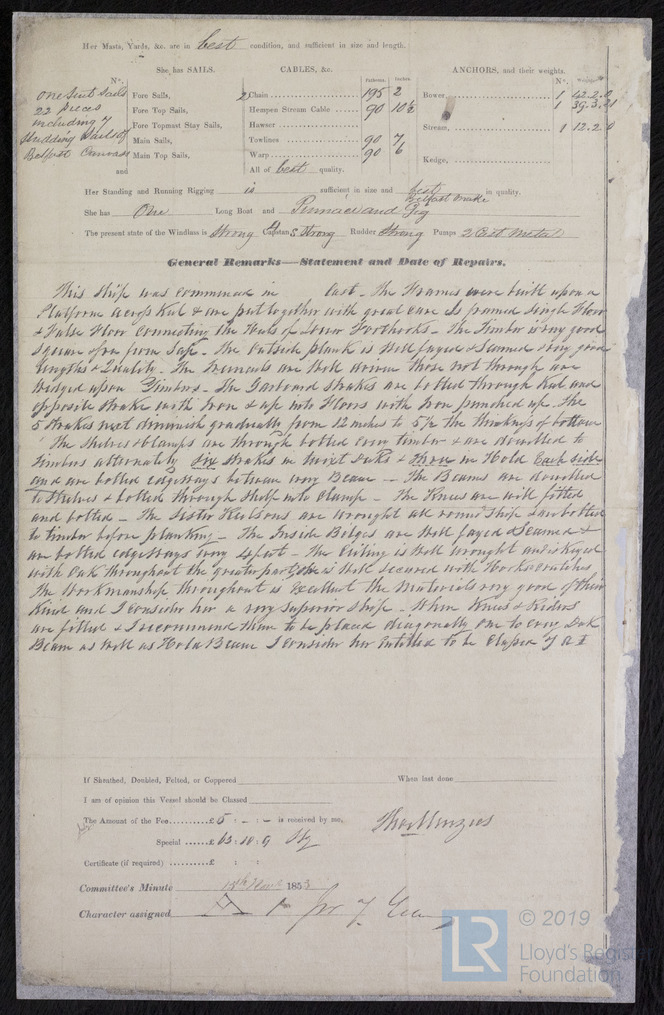 Her Masts, Yards, &c. are in best condition, and sufficient in size and length.
She has SAILS.
CABLES, &c.
ANCHORS, and their weights.
Nº.
Fathoms.
Inches
Nº.
Weights
One Suit Sails
22 pieces
including 7
Studding Sails of
Belfast Canvass
and
Fore Sails,
Fore Top Sails,
Fore Topmast Stay Sails,
Main Sails,
Main Top Sails,
Chain 195 2
Hempen Stream Cable 90 10½
Hawser
Towlines 90 7
Warp 90 6
All of best quality.
Bower, 1 42.2.0
1 39.3.21
Stream, 1 12.2.0
Kedge,
Her Standing and Running Rigging is sufficient in size and best in quality.
Belfast make
She has One Long Boat and Pinnace and Gig
The present state of the Windlass is Strong Capstan Strong Rudder Strong Pumps 2 Metal
General Remarks—Statement and Date of Repairs.
This Ship was commenced in last - The Frames were built upon a
Platform across Keel & are put together with great care is framed single Floor
& False Floor connecting the Heels of Lower Foothooks - The Timber is very good
Square & free from Sap - The outside plank is Well fayed & Seamed & very good
lengths & Quality - The Treenails are Well driven those not through are
wedged upon Timbers - The Garboard Strakes are bolted through Keel and
opposite Strake with Iron & up into Floors with Iron punched up. The
5 Strakes next diminish gradually from 12 inches to 5½ the thickness of bottom
The Shelves & Clamps are through bolted every timber & are dowelled to
timbers alternately Six Strakes in twixt Decks & three in Hold Each side
and are bolted edgeways between every Beam - The Beams are dowelled
to Shelves & bolted through Shelf into Clamp - The Knees are well fitted
and bolted - The Sister Keelsons are wrought all round Ship & are bolted
to timber before planking - The Inside Bilges are Well fayed & Seamed &
are bolted edgeways every 4 feet - The Ceiling is Well wrought and
with Oak throughout the greater part She is Well secured with Hooks & Crutches
The Workmanship throughout is Excellent the Materials very good of their
Kind and I consider her a very Superior Ship - When Knees & Riders
are fitted & I recommend them to be placed diagonally one to every Deck
Beam as well as Hold Beam I consider her Entitled to be Classed 7 A 1
If Sheathed, Doubled, Felted, or Coppered
When last done
I am of opinion this Vessel should be Classed
The Amount of the Fee £ 5 : - : - is received by me,
Thos Menzies
Special £ 63.10.9
Certificate (if required) £ : :
Committee's Minute 1853
Character assigned A 1 for 7
LR
© 2019
Lloyd's Register
Foundation